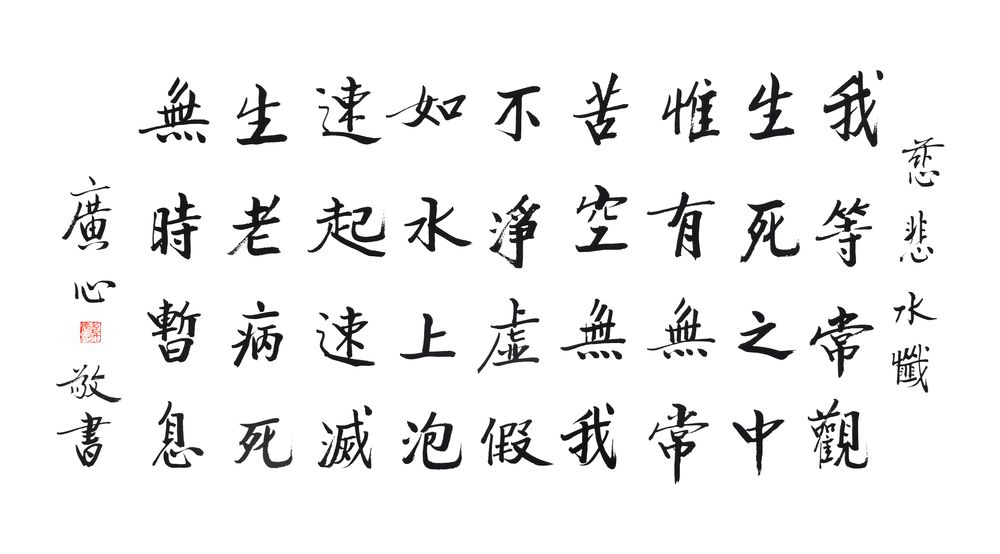 慈悲水懺
我等常觀
生死之中
惟有無常
苦空無我
不淨虛假
如水上泡
速起速滅
生老病死
無時暫息
廣心敬書